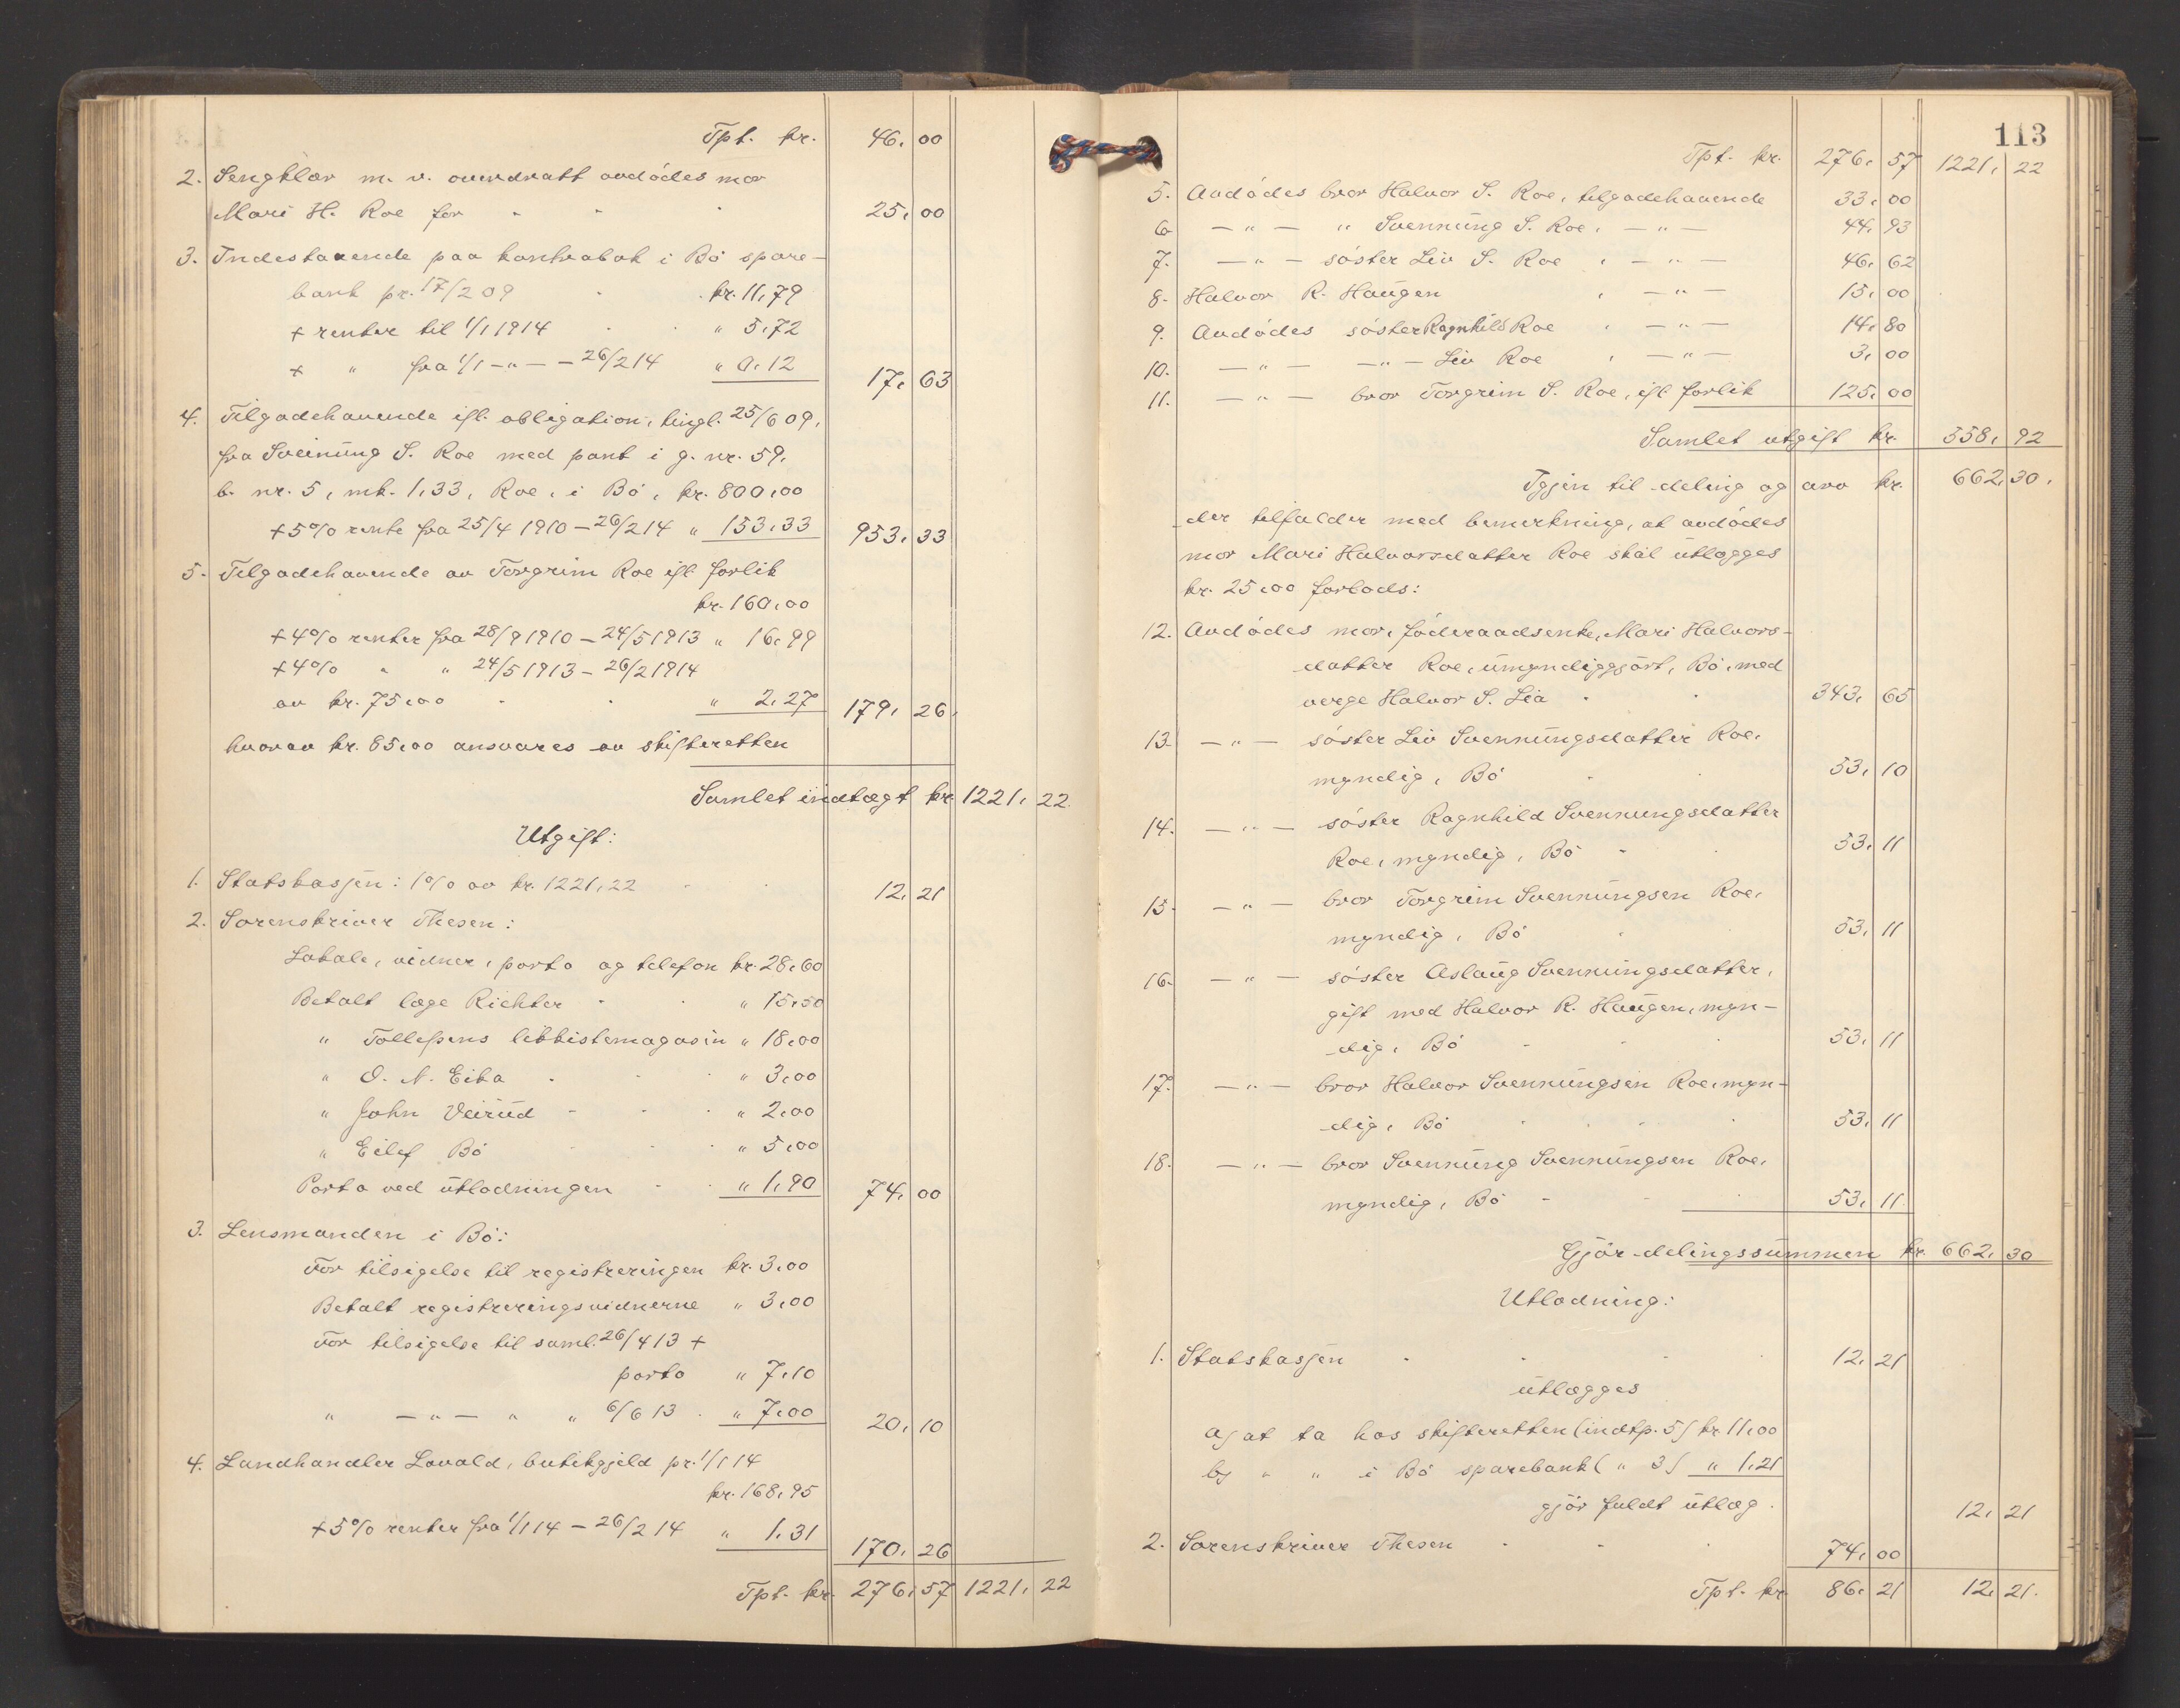 Tpt. kr. 46,00
2. Sengklær m. v. overdratt avdödes mor
Mari H. Roe for " " " 25,00
3. Indestaaende paa kontrabok i Bö spare-
bank pr. 17/2 09 kr. 11,79
+ renter til 1/1 1914 " 5,72
+ " fra 1/1 -"- - 26/2 14 " 0,12 17,63
4. Tilgodehavende ifl. obligation, tingl. 25/6 09,
fra Sveinung S. Roe med pant i g. nr. 59,
b. nr. 5, mk. 1,33, Roe, i Bö, kr. 800,00
+ 5% rente fra 25/4 1910 - 26/2 14 " 153,33 953,33
5. Tilgodehavende av Torgrim Roe ifl. forlik
kr. 160,00
+ 4% renter fra 28/9 1910 - 24/5 1913 " 16,99
+ 4% " " 24/5 1913 - 26/2 1914
av kr. 75,00 " 2,27 179,26
hvorav kr. 85,00 ansvares av skifteretten
Samlet indtægt kr. 1221,22
Utgift:
1. Statskassen: 1% av kr. 1221,22 12,21
2. Sorenskriver Thesen:
Lokale, vidner, porto og telefon kr. 28,60
Betalt læge Richter " 15,50
" Tollefsens likkistemagasin " 18,00
" O. N. Eika " 3,00
" John Veirud " 2,00
" Eilef Bö " 5,00
Porto ved utlodningen " 1,90 74,00
3. Lensmanden i Bö:
For tilsigelse til registreringen kr. 3,00
Betalt registreringsvidnerne " 3,00
For tilsigelse til saml. 26/4 13 +
porto " 7,10
" -"- " " 6/6 13 " 7,00 20,10
4. Landhandler Lovald, butikgjeld pr. 1/1 14
kr. 168,95
+ 5% renter fra 1/1 14 - 26/2 14 " 1,31 170,26
Tpt. kr. 276,57 1221,22
113
Tpt. kr. 276,57 1221,22
5. Avdödes bror Halvor S. Roe, tilgodehavende 33,00
6. -"- " Svennung S. Roe, -"- 44,93
7. -"- söster Liv S. Roe, -"- 46,62
8. Halvor R. Haugen, -"- 15,00
9. Avdödes söster Ragnhild Roe, -"- 14,80
10. -"- -"- Liv Roe, -"- 3,00
11. -"- bror Torgrim S. Roe, ifl. forlik 125,00
Samlet utgift kr. 558,92
Igjen til deling og arv kr. 662,30,
der tilfalder med bemerkning, at avdödes
mor Mari Halvorsdatter Roe skal utlægges
kr. 25,00 forlods:
12. Avdödes mor, föderaadsenke, Mari Halvors-
datter Roe, umyndiggjort, Bö, med
verge Halvor S. Lia 343,65
13. -"- söster Liv Svennungsdatter Roe,
myndig, Bö 53,10
14. -"- söster Ragnhild Svennungsdatter
Roe, myndig, Bö 53,11
15. -"- bror Torgrim Svennungsen Roe,
myndig, Bö 53,11
16. -"- söster Aslaug Svennungsdatter,
gift med Halvor R. Haugen, myn-
dig, Bö 53,11
17. -"- bror Halvor Svennungsen Roe, myn-
dig, Bö 53,11
18. -"- bror Svennung Svennungsen Roe,
myndig, Bö 53,11
Gjör delingssummen kr. 662,30
Utlodning:
1. Statskassen 12,21
utlægges
a) at ta hos skifteretten (indtp. 5) kr. 11,00
b) " " i Bö sparebank ( " 3) " 1,21
gjör fuldt utlæg. 12,21
2. Sorenskriver Thesen 74,00
Tpt. kr. 86,21 12,21.